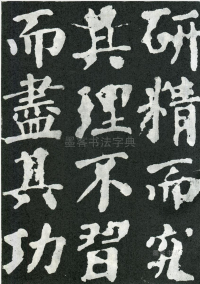 研精而究
其理不習
而盡其功
墨客书法字典